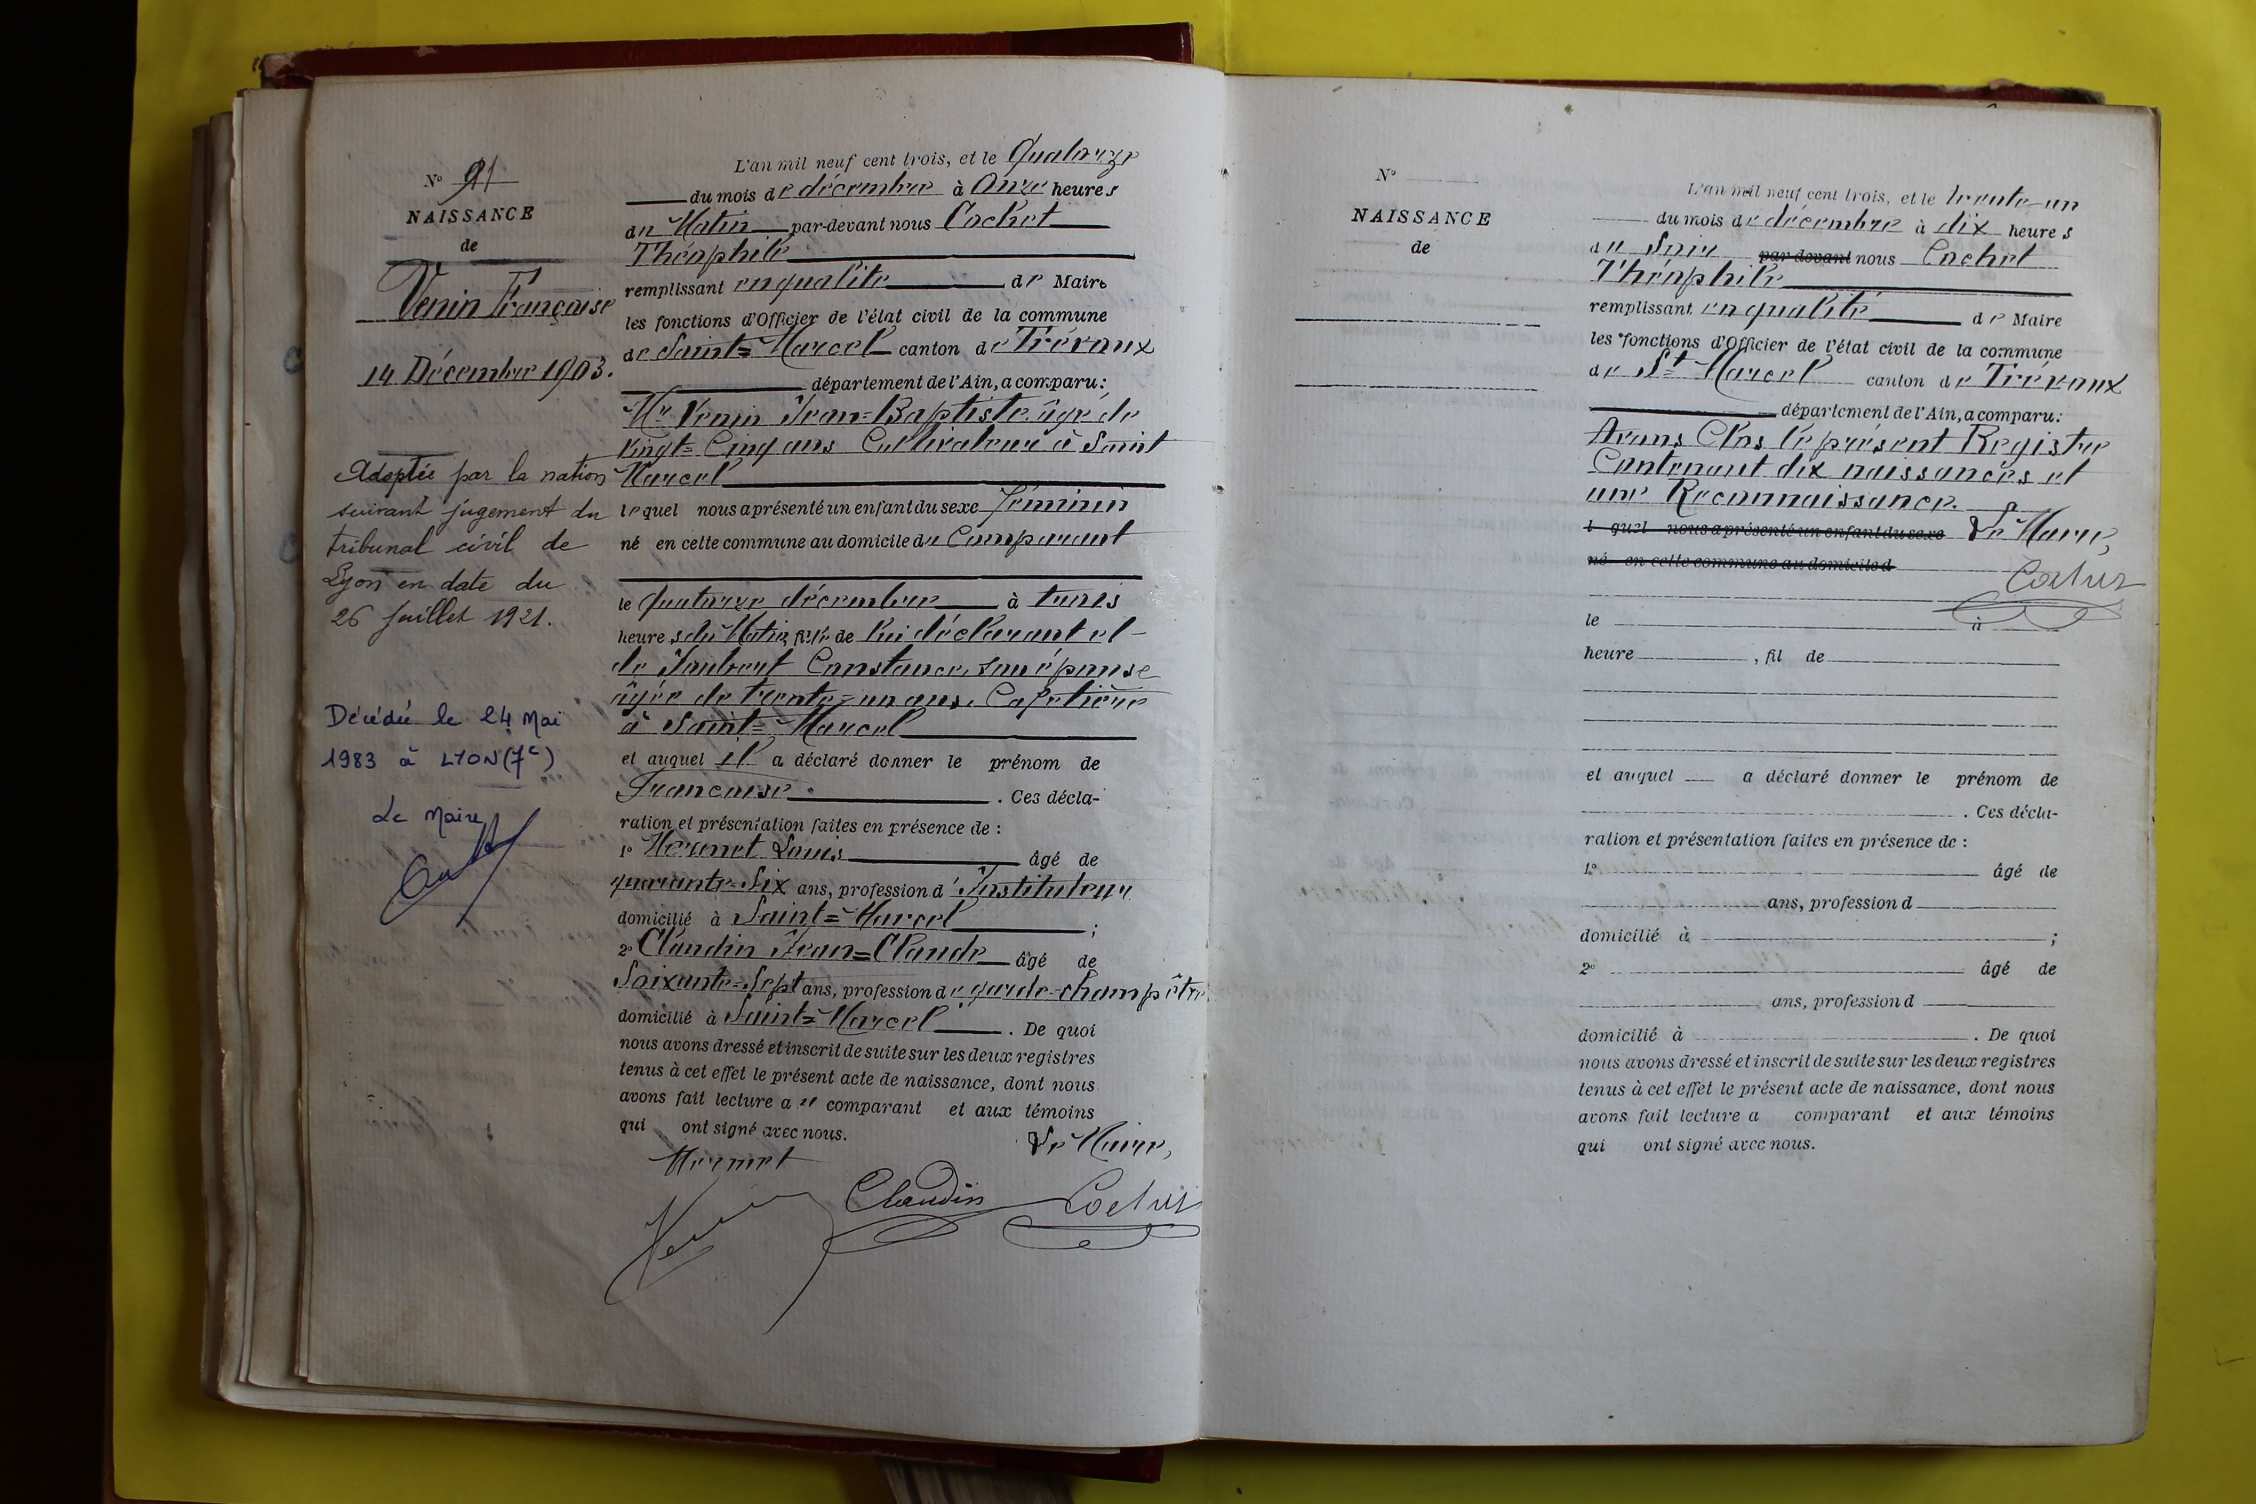 N° 91
NAISSANCE
de
Venin Françoise
14 Décembre 1903.
Adoptée par la nation
suivant jugement du
tribunal civil de
Lyon en date du
26 Juillet 1921.
Décédée le 24 Mai
1983 à LYON (7e)
Le Maire
L'an mil neuf cent trois, et le Quatorze
du mois de décembre à Onze heures
du Matin par-devant nous Cochet
Théophile
remplissant en qualité de Maire
les fonctions d'Officier de l'état civil de la commune
de Saint=Marcel canton de Trévoux
département de l'Ain, a comparu:
Mr Venin Jean=Baptiste âgé de
vingt=Cinq ans Cultivateur à Saint
Marcel
lequel nous a présenté un enfant du sexe féminin
né en cette commune au domicile du Comparant
le quatorze décembre à trois
heures du Matin, fille de lui déclarant et
de Joubert Constance, son épouse
âgée de trente=un ans, Cafetière
à Saint=Marcel
et auquel il a déclaré donner le prénom de
Françoise. Ces décla-
ration et présentation faites en présence de :
1° Mermet Louis âgé de
quarante=Six ans, profession d'Instituteur
domicilié à Saint=Marcel ;
2° Claudin Jean=Claude âgé de
Soixante=Sept ans, profession de garde-champêtre
domicilié à Saint=Marcel. De quoi
nous avons dressé et inscrit de suite sur les deux registres
tenus à cet effet le présent acte de naissance, dont nous
avons fait lecture au comparant et aux témoins
qui ont signé avec nous.
Le Maire,
Mermet
Claudin Cochet
N°
NAISSANCE
de
L'an mil neuf cent trois, et le trente-un
du mois de décembre à dix heures
du Soir par devant nous Cochet
Théophile
remplissant en qualité de Maire
les fonctions d'Officier de l'état civil de la commune
de St=Marcel canton de Trévoux
département de l'Ain, a comparu:
Avons Clos le présent Registre
Contenant dix naissances et
une Reconnaissance.
l quel nous a présenté un enfant du sexe Le Maire,
né en cette commune au domicile d
Cochet
le à
heure , fil de
et auquel a déclaré donner le prénom de
. Ces décla-
ration et présentation faites en présence de :
1° âgé de
ans, profession d
domicilié à ;
2° âgé de
ans, profession d
domicilié à . De quoi
nous avons dressé et inscrit de suite sur les deux registres
tenus à cet effet le présent acte de naissance, dont nous
avons fait lecture a comparant et aux témoins
qui ont signé avec nous.